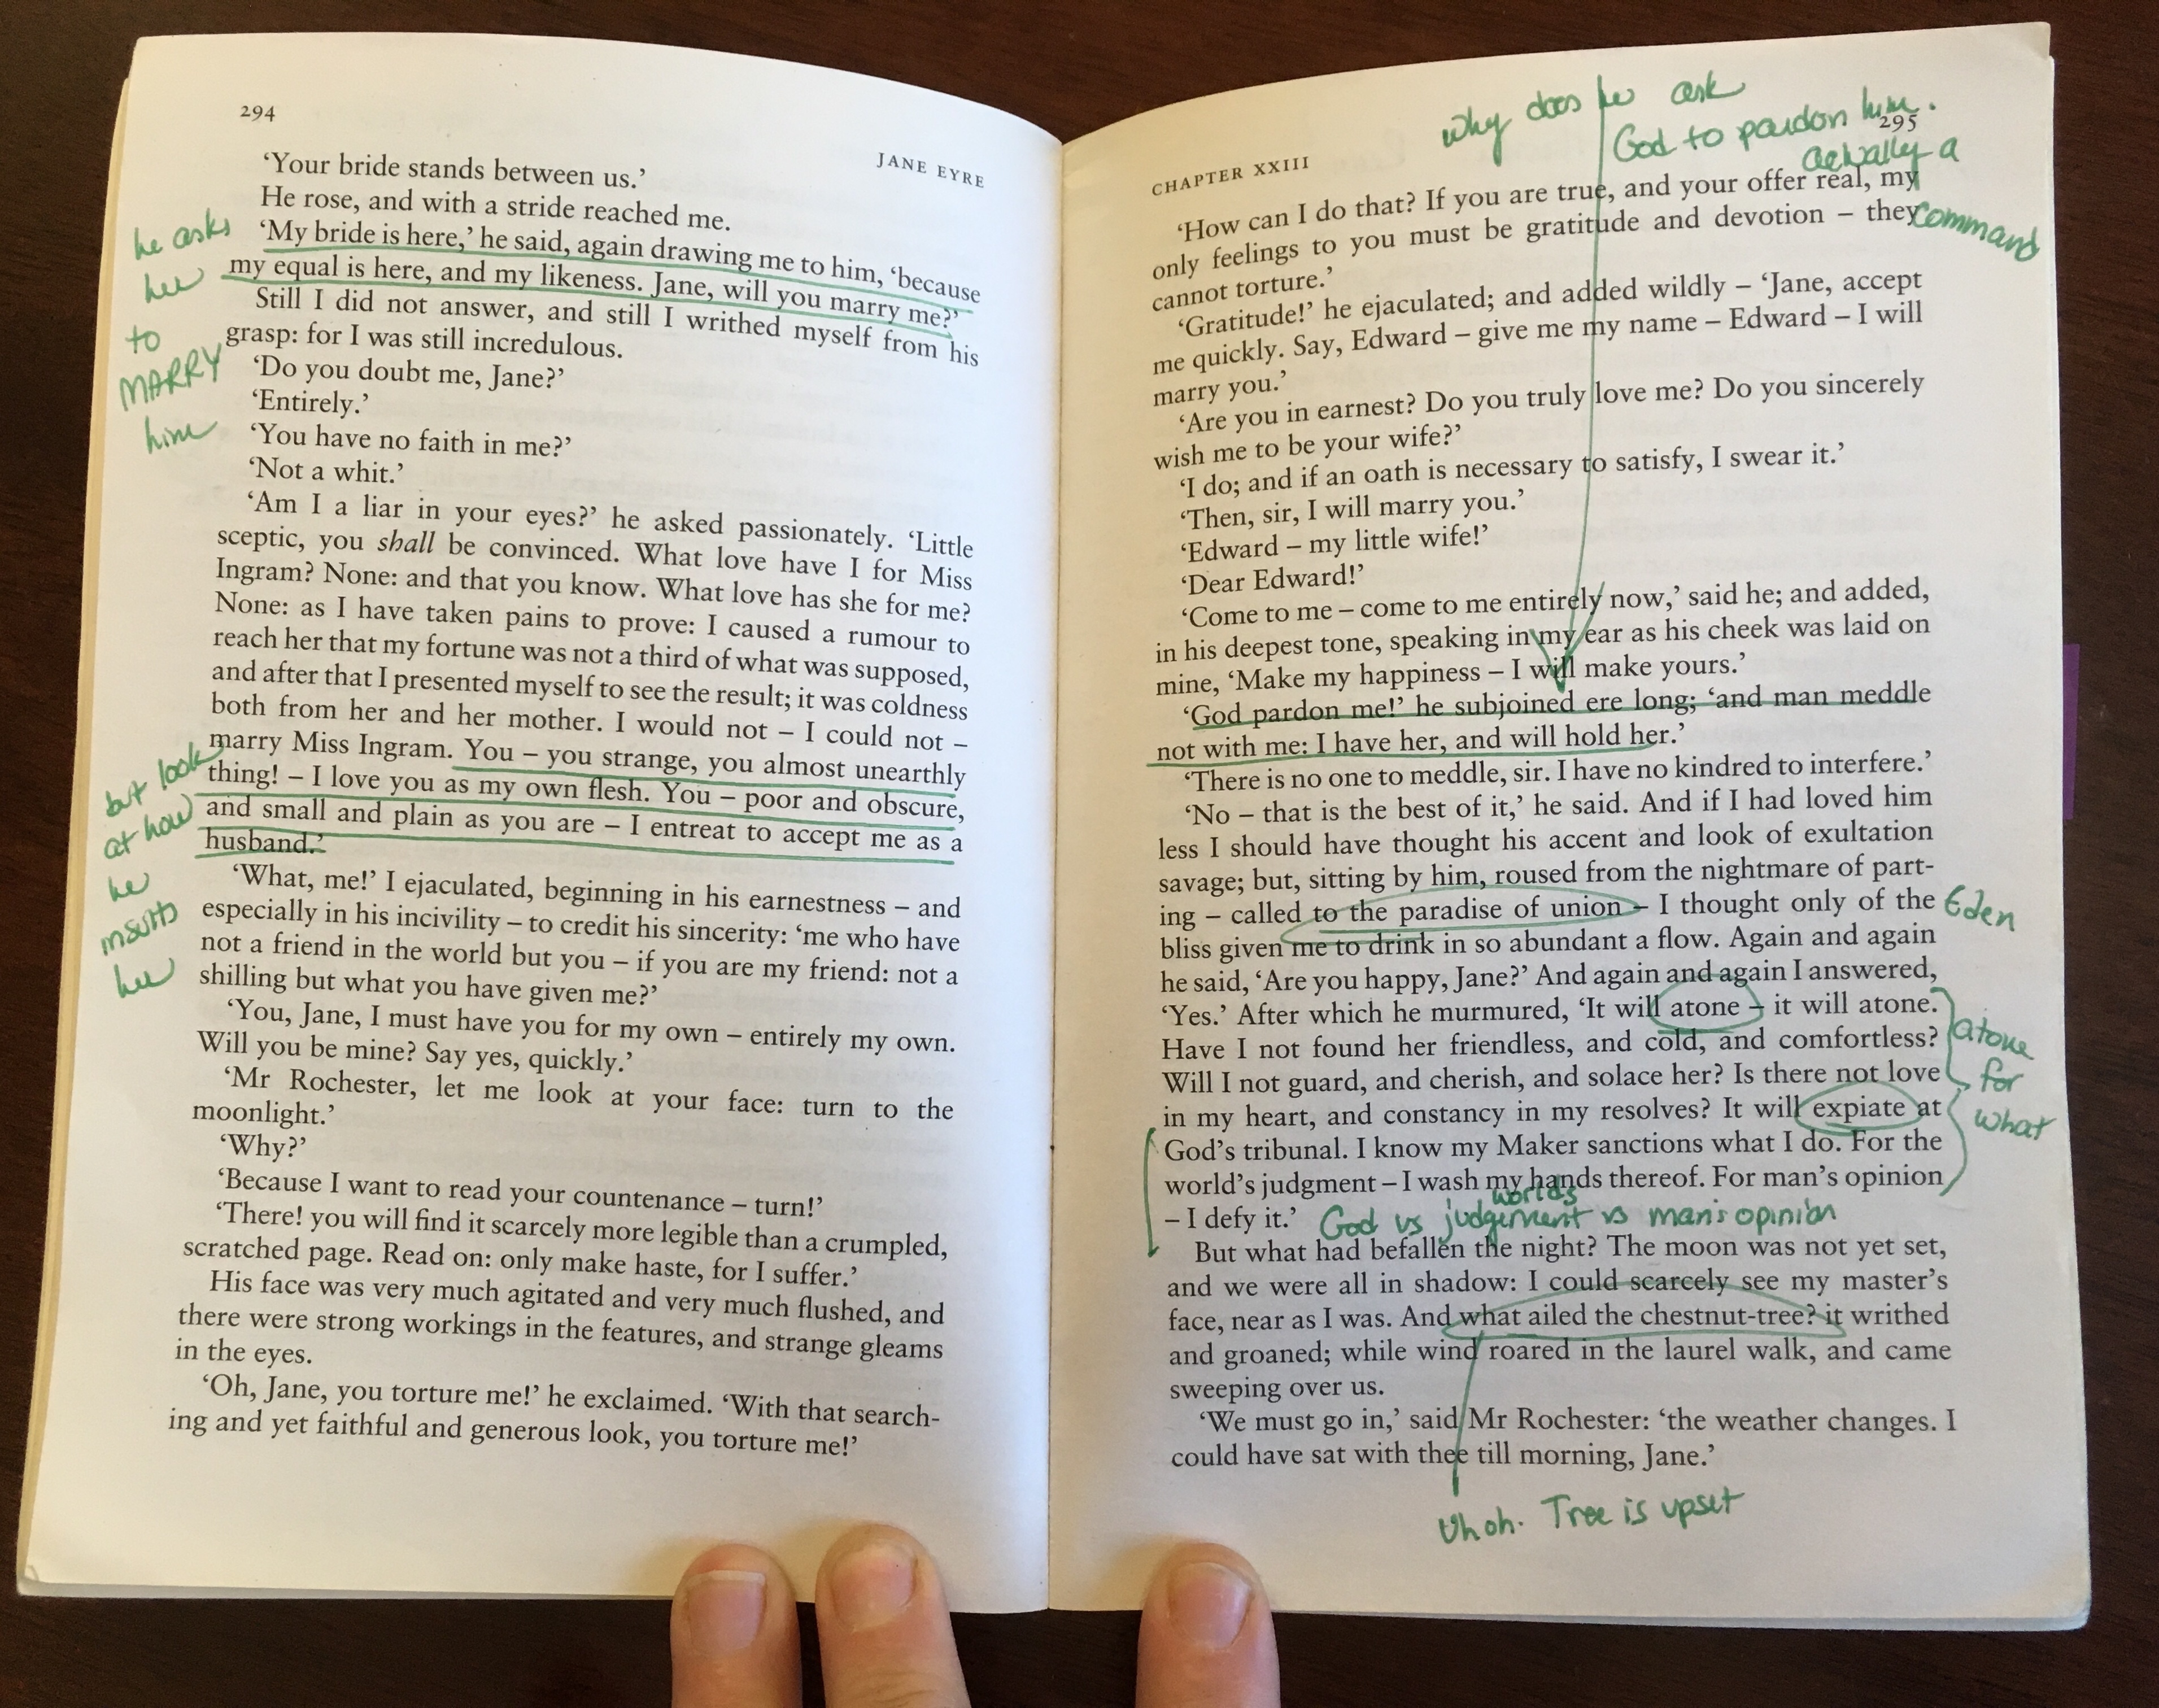 294
JANE EYRE
‘Your bride stands between us.’
He rose, and with a stride reached me.
‘My bride is here,’ he said, again drawing me to him, ‘because
my equal is here, and my likeness. Jane, will you marry me?’
Still I did not answer, and still I writhed myself from his
grasp: for I was still incredulous.
‘Do you doubt me, Jane?’
‘Entirely.’
‘You have no faith in me?’
‘Not a whit.’
‘Am I a liar in your eyes?’ he asked passionately. ‘Little
sceptic, you shall be convinced. What love have I for Miss
Ingram? None: and that you know. What love has she for me?
None: as I have taken pains to prove: I caused a rumour to
reach her that my fortune was not a third of what was supposed,
and after that I presented myself to see the result; it was coldness
both from her and her mother. I would not – I could not –
marry Miss Ingram. You – you strange, you almost unearthly
thing! – I love you as my own flesh. You – poor and obscure,
and small and plain as you are – I entreat to accept me as a
husband.’
‘What, me!’ I ejaculated, beginning in his earnestness – and
especially in his incivility – to credit his sincerity: ‘me who have
not a friend in the world but you – if you are my friend: not a
shilling but what you have given me?’
‘You, Jane, I must have you for my own – entirely my own.
Will you be mine? Say yes, quickly.’
‘Mr Rochester, let me look at your face: turn to the
moonlight.’
‘Why?’
‘Because I want to read your countenance – turn!’
‘There! you will find it scarcely more legible than a crumpled,
scratched page. Read on: only make haste, for I suffer.’
His face was very much agitated and very much flushed, and
there were strong workings in the features, and strange gleams
in the eyes.
‘Oh, Jane, you torture me!’ he exclaimed. ‘With that search-
ing and yet faithful and generous look, you torture me!’
he asks
her
to
MARRY
him
but look
at how
he
insults
her
why does he ask
God to pardon him.
actually a
command
295
CHAPTER XXIII
‘How can I do that? If you are true, and your offer real, my
only feelings to you must be gratitude and devotion – they
cannot torture.’
‘Gratitude!’ he ejaculated; and added wildly – ‘Jane, accept
me quickly. Say, Edward – give me my name – Edward – I will
marry you.’
‘Are you in earnest? Do you truly love me? Do you sincerely
wish me to be your wife?’
‘I do; and if an oath is necessary to satisfy, I swear it.’
‘Then, sir, I will marry you.’
‘Edward – my little wife!’
‘Dear Edward!’
‘Come to me – come to me entirely now,’ said he; and added,
in his deepest tone, speaking in my ear as his cheek was laid on
mine, ‘Make my happiness – I will make yours.’
‘God pardon me!’ he subjoined ere long; ‘and man meddle
not with me: I have her, and will hold her.’
‘There is no one to meddle, sir. I have no kindred to interfere.’
‘No – that is the best of it,’ he said. And if I had loved him
less I should have thought his accent and look of exultation
savage; but, sitting by him, roused from the nightmare of part-
ing – called to the paradise of union – I thought only of the
bliss given me to drink in so abundant a flow. Again and again
he said, ‘Are you happy, Jane?’ And again and again I answered,
‘Yes.’ After which he murmured, ‘It will atone – it will atone.
Have I not found her friendless, and cold, and comfortless?
Will I not guard, and cherish, and solace her? Is there not love
in my heart, and constancy in my resolves? It will expiate at
God’s tribunal. I know my Maker sanctions what I do. For the
world’s judgment – I wash my hands thereof. For man’s opinion
– I defy it.’
But what had befallen the night? The moon was not yet set,
and we were all in shadow: I could scarcely see my master’s
face, near as I was. And what ailed the chestnut-tree? it writhed
and groaned; while wind roared in the laurel walk, and came
sweeping over us.
‘We must go in,’ said Mr Rochester: ‘the weather changes. I
could have sat with thee till morning, Jane.’
Eden
atone
for
what
worlds
God vs judgement vs man's opinion
Uh oh. Tree is upset